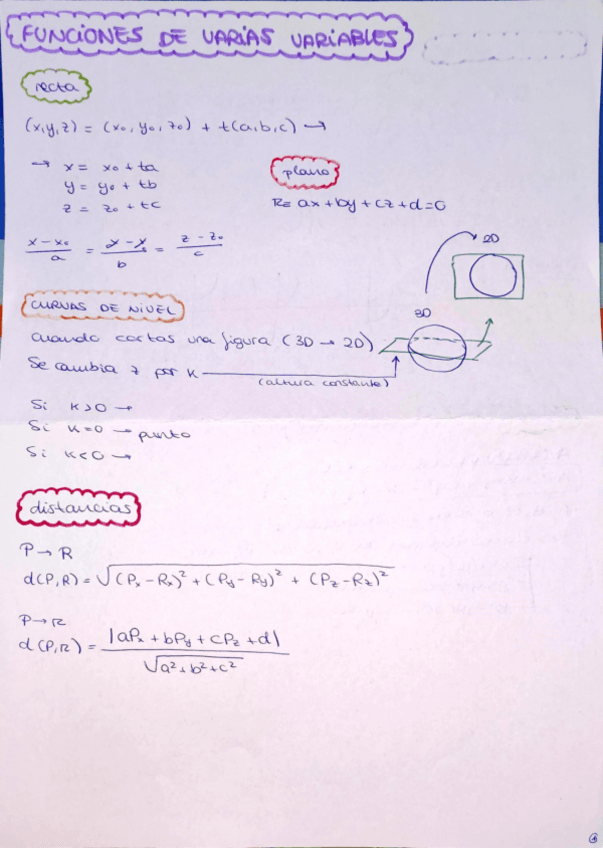 FUNCIONES DE VARIAS VARIABLES
recta
(x,y,z) = (x₀, y₀, z₀) + t(a,b,c) →
→ x = x₀ + ta
y = y₀ + tb
z = z₀ + tc
plano
π ≡ ax + by + cz + d = 0
(x - x₀)/a = (y - y₀)/b = (z - z₀)/c
2D
CURVAS DE NIVEL
3D
Cuando cortas una figura (3D → 2D)
Se cambia z por K
(altura constante)
Si K>0 →
Si K=0 → punto
Si K<0 →
distancias
P → R
d(P,R) = √((Px - Rx)² + (Py - Ry)² + (Pz - Rz)²)
P → π
d(P,π) = |aPx + bPy + cPz + d| / √(a² + b² + c²)